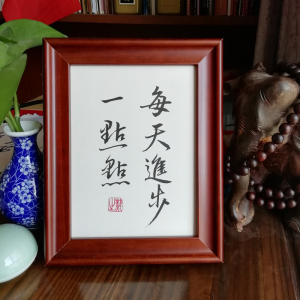 每天進步
一點點